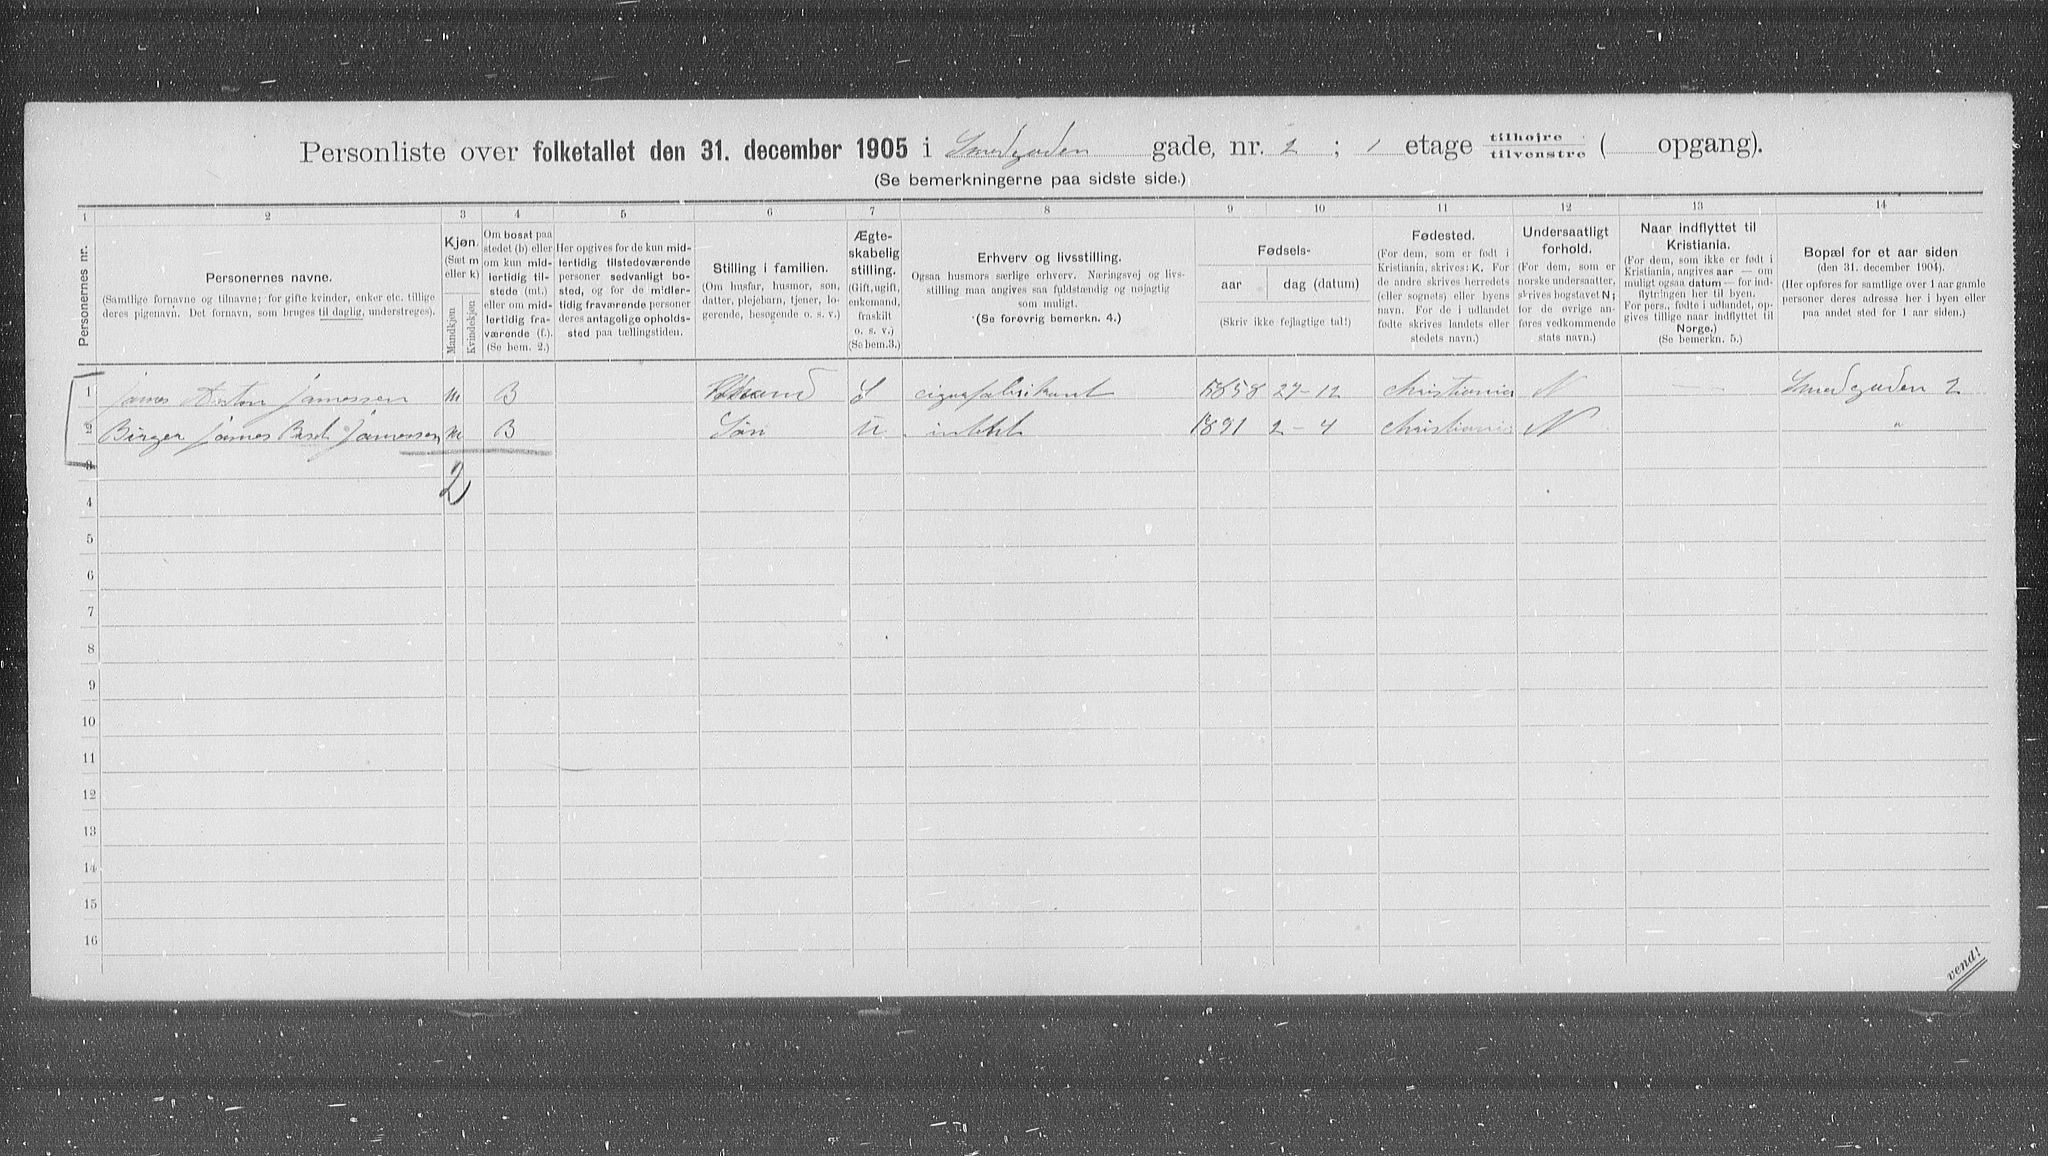 Personliste over folketallet den 31. december 1905 i Smedgaden gade, nr. 2 ; 1 etage tilhøjre tilvenstre ( opgang).
(Se bemerkningerne paa sidste side.)
1 2 3 4 5 6 7 8 9 10 11 12 13 14
Personernes nr.
Personernes navne.
(Samtlige fornavne og tilnavne; for gifte kvinder, enker etc. tillige
deres pigenavn. Det fornavn, som bruges til daglig, understreges).
Kjøn.
(Sæt m
eller k)
Mandkjøn
Kvindekjøn
Om bosat paa
stedet (b) eller
om kun mid-
lertidig til-
stede (mt.)
eller om mid-
lertidig fra-
værende (f.).
(Se bem. 2.)
Her opgives for de kun mid-
lertidig tilstedeværende
personer sedvanligt bo-
sted, og for de midler-
tidig fraværende personer
deres antagelige opholds-
sted paa tællingstiden.
Stilling i familien.
(Om husfar, husmor, søn,
datter, plejebarn, tjener, lo-
gerende, besøgende o. s. v.)
Ægte-
skabelig
stilling.
(Gift, ugift,
enkemand,
fraskilt
o. s. v.)
(Se bem.3.)
Erhverv og livsstilling.
Ogsaa husmors særlige erhverv. Næringsvej og livs-
stilling maa angives saa fuldstændig og nøjagtig
som muligt.
(Se forøvrig bemerkn. 4.)
Fødsels-
aar
dag (datum)
(Skriv ikke fejlagtige tal!)
Fødested.
(For dem, som er født i
Kristiania, skrives: K. For
de andre skrives herredets
(eller sognets) eller byens
navn. For de i udlandet
fødte skrives landets eller
stedets navn.)
Undersaatligt
forhold.
(For dem, som er
norske undersaatter,
skrives bogstavet N;
for de øvrige an-
føres vedkommende
stats navn.)
Naar indflyttet til
Kristiania.
(For dem, som ikke er født i
Kristiania, angives aar — om
muligt ogsaa datum — for ind-
flytningen her til byen.
For pers., fødte i udlandet, op-
gives tillige naar indflyttet til
Norge.)
(Se bemerkn. 5.)
Bopæl for et aar siden
(den 31. december 1904).
(Her opføres for samtlige over 1 aar gamle
personer deres adresse her i byen eller
paa andet sted for 1 aar siden.)
1 James Anton Jamessen m B S cigarfabrikant 1858 27-12 Christiania N — Smedgaden 2
2 Birger James Jamessen m B Søn U 1891 2-4 Christiania N "
3
2
4
5
6
7
8
9
10
11
12
13
14
15
16
vend!